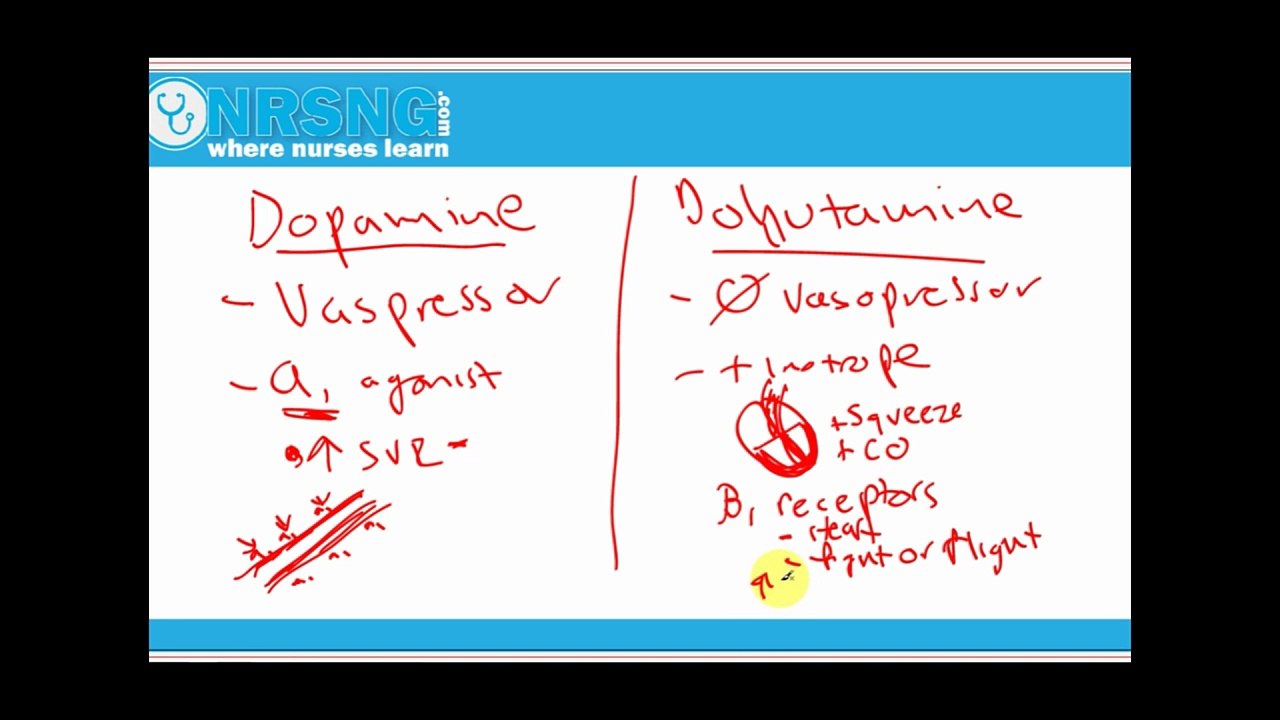 NRSNG.com
where nurses learn
Dopamine
- Vaspressor
- a, agonist
↑ SVR -
Dobutamine
- Ø vasopressor
- + Inotrope
+ Squeeze
+ CO
B, receptors
- Heart
- fight or flight